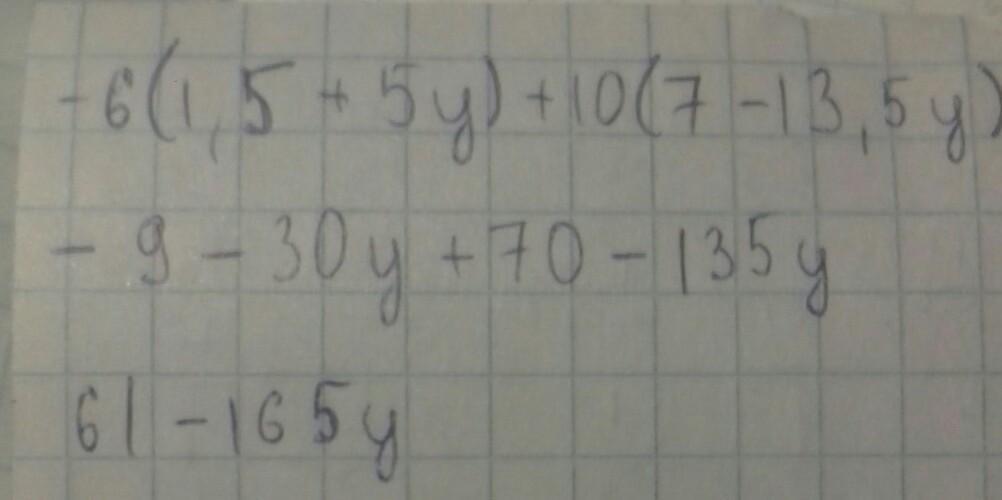 -6(1,5 + 5y) + 10(7 - 13,5y)
- 9 - 30y + 70 - 135y
61 - 165y